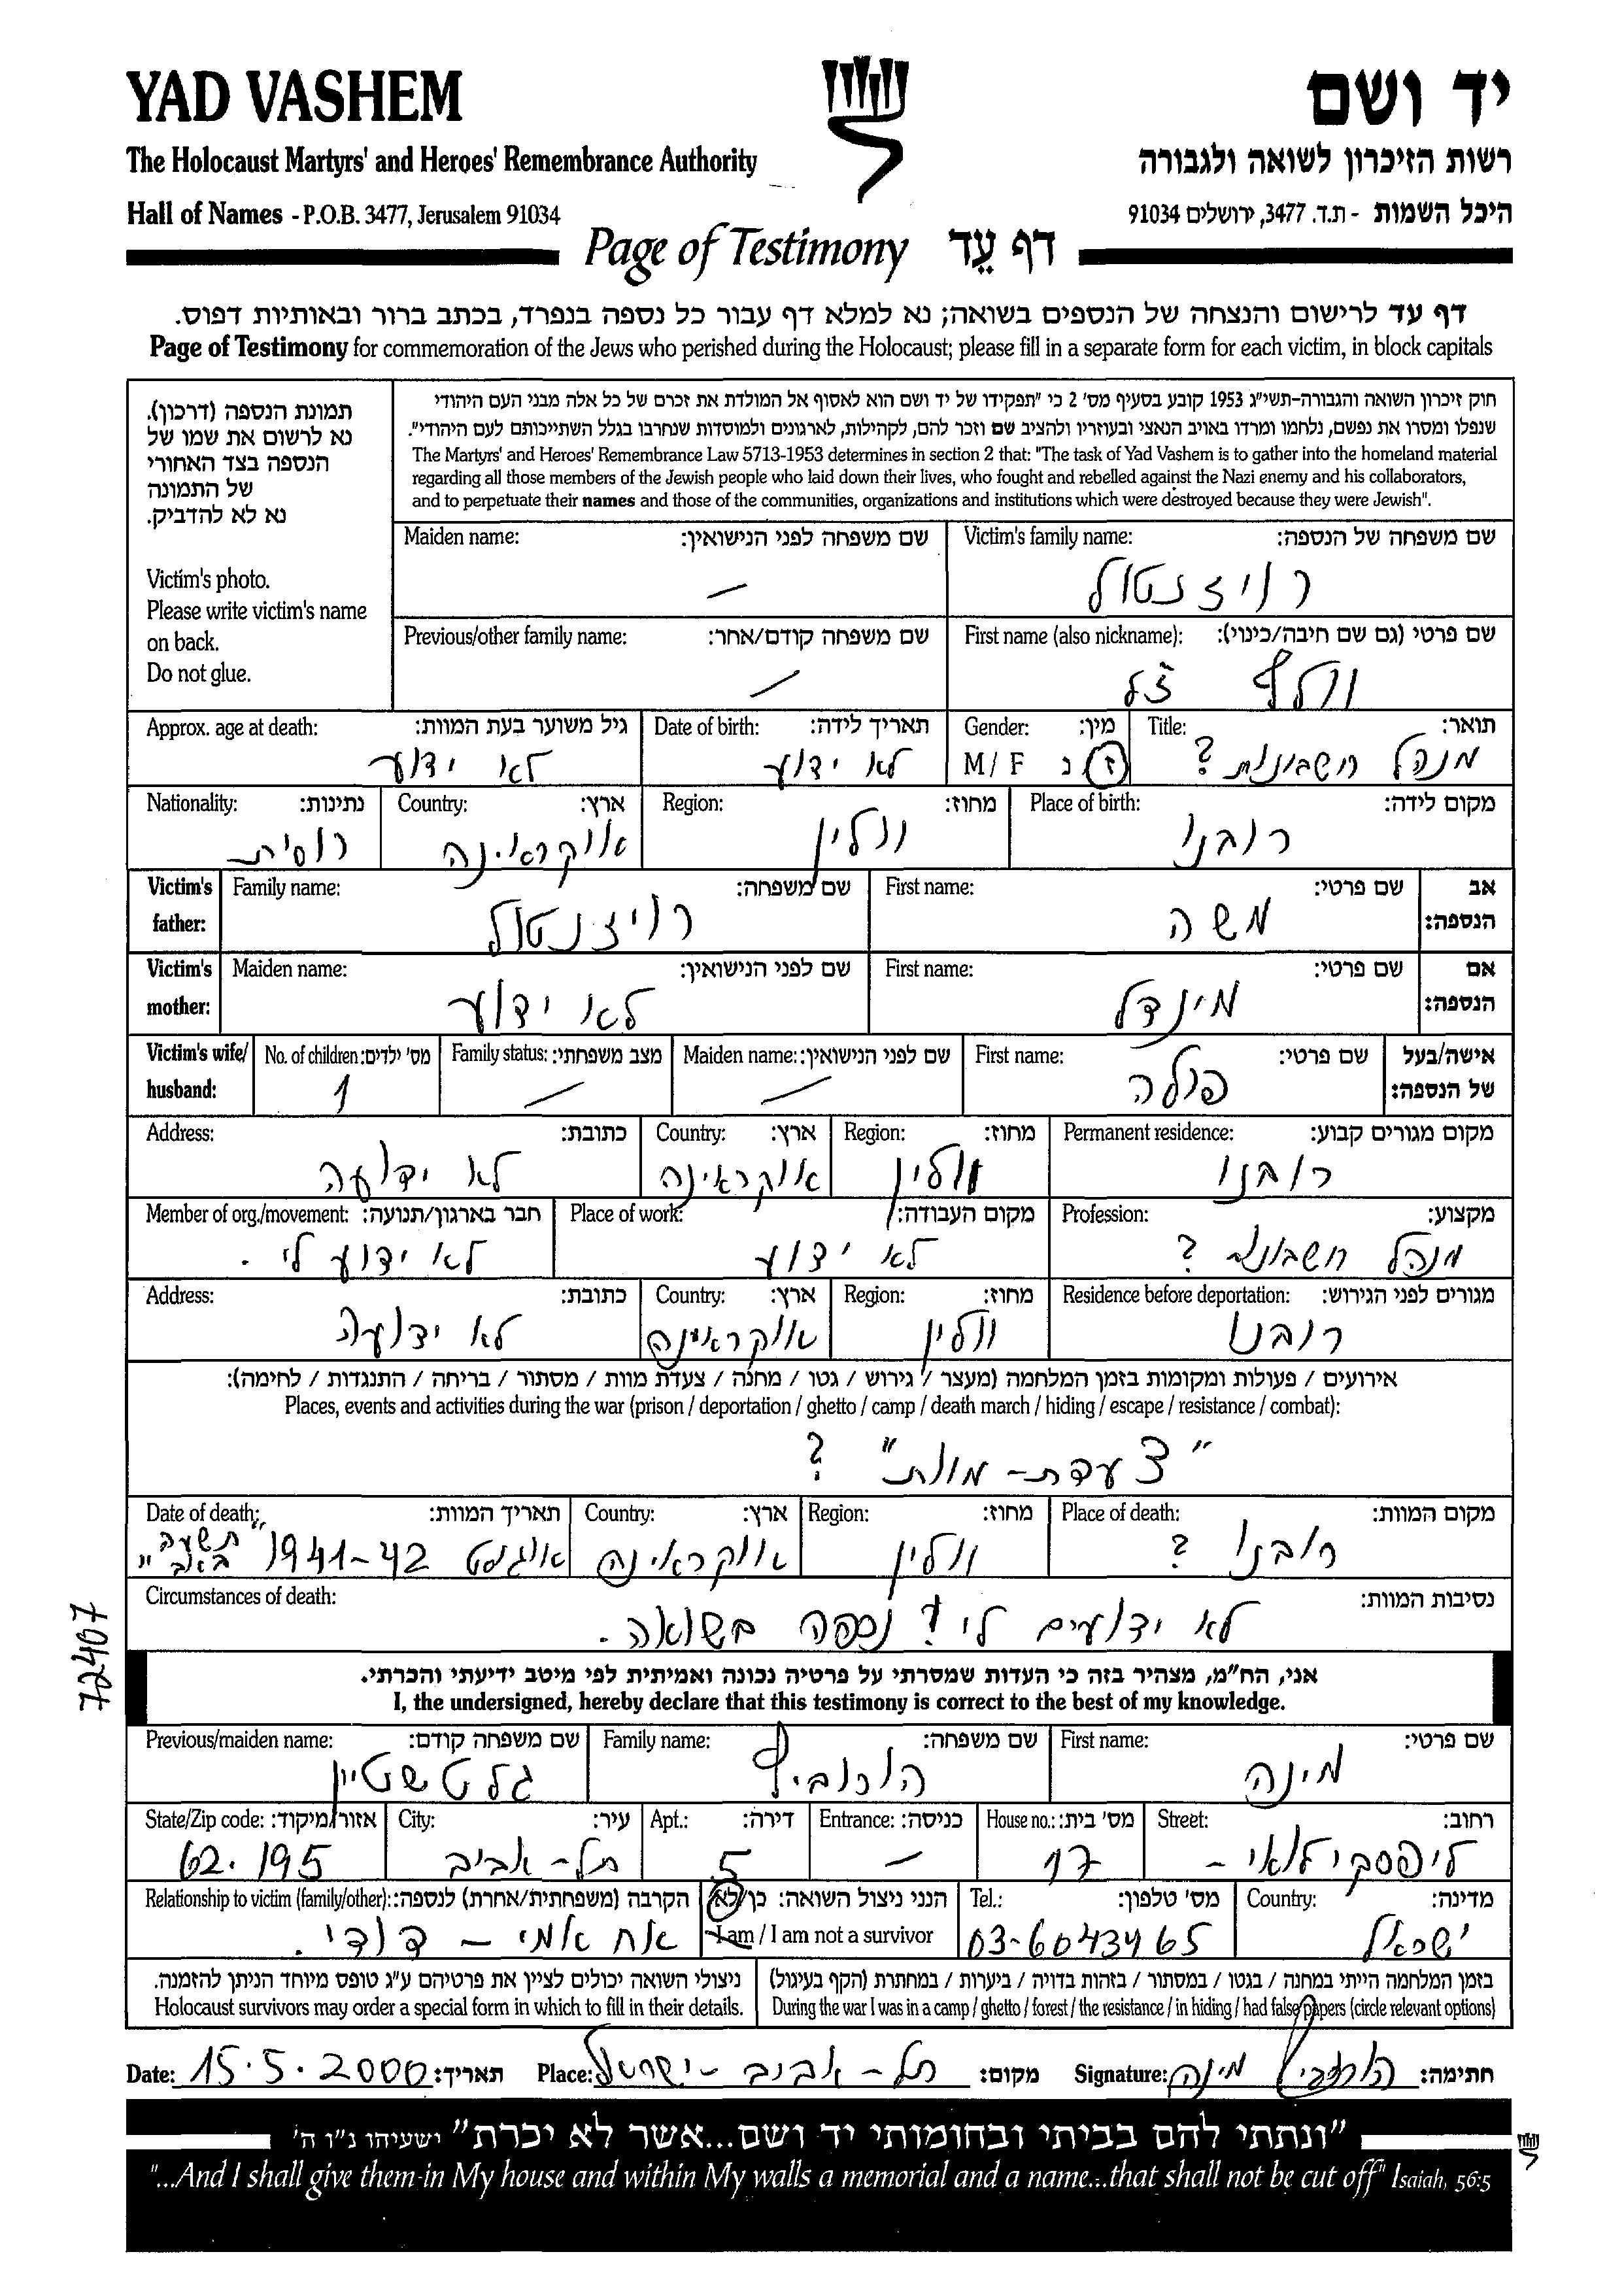 YAD VASHEM
יד ושם
The Holocaust Martyrs' and Heroes' Remembrance Authority
רשות הזיכרון לשואה ולגבורה
Hall of Names - P.O.B. 3477, Jerusalem 91034
היכל השמות - ת.ד. 3477, ירושלים 91034
Page of Testimony דף עֵד
דף עד לרישום והנצחה של הנספים בשואה; נא למלא דף עבור כל נספה בנפרד, בכתב ברור ובאותיות דפוס.
Page of Testimony for commemoration of the Jews who perished during the Holocaust; please fill in a separate form for each victim, in block capitals
תמונת הנספה (דרכון).
נא לרשום את שמו של
הנספה בצד האחורי
של התמונה
נא לא להדביק.
Victim's photo.
Please write victim's name
on back.
Do not glue.
חוק זיכרון השואה והגבורה-תשי"ג 1953 קובע בסעיף מס' 2 כי "תפקידו של יד ושם הוא לאסוף אל המולדת את זכרם של כל אלה מבני העם היהודי
שנפלו ומסרו את נפשם, נלחמו ומרדו באויב הנאצי ובעוזריו ולהציב שם וזכר להם, לקהילות, לארגונים ולמוסדות שנחרבו בגלל השתייכותם לעם היהודי".
The Martyrs' and Heroes' Remembrance Law 5713-1953 determines in section 2 that: "The task of Yad Vashem is to gather into the homeland material
regarding all those members of the Jewish people who laid down their lives, who fought and rebelled against the Nazi enemy and his collaborators,
and to perpetuate their names and those of the communities, organizations and institutions which were destroyed because they were Jewish".
Victim's family name: שם משפחה של הנספה:
רויזנטול
Maiden name: שם משפחה לפני הנישואין:
–
First name (also nickname): שם פרטי (גם שם חיבה/כינוי):
וולף ז"ל
Previous/other family name: שם משפחה קודם/אחר:
–
Title: תואר:
מנהל חשבונות ?
Gender: מין:
M / F ז נ
Date of birth: תאריך לידה:
לא ידוע
Approx. age at death: גיל משוער בעת המוות:
לא ידוע
Place of birth: מקום לידה:
רובנו
Region: מחוז:
וולין
Country: ארץ:
אוקראינה
Nationality: נתינות:
רוסית
Victim's father: אב הנספה:
First name: שם פרטי:
משה
Family name: שם משפחה:
רויזנטול
Victim's mother: אם הנספה:
First name: שם פרטי:
מינדל
Maiden name: שם לפני הנישואין:
לא ידוע
Victim's wife/ husband: אישה/בעל של הנספה:
First name: שם פרטי:
פולה
Maiden name: שם לפני הנישואין:
–
Family status: מצב משפחתי:
–
No. of children: מס' ילדים:
1
Permanent residence: מקום מגורים קבוע:
רובנו
Region: מחוז:
וולין
Country: ארץ:
אוקראינה
Address: כתובת:
לא ידועה
Profession: מקצוע:
מנהל חשבונות ?
Place of work: מקום העבודה:
לא ידוע
Member of org./movement: חבר בארגון/תנועה:
לא ידוע לי .
Residence before deportation: מגורים לפני הגירוש:
רובנו
Region: מחוז:
וולין
Country: ארץ:
אוקראינה
Address: כתובת:
לא ידועה
אירועים / פעולות ומקומות בזמן המלחמה (מעצר / גירוש / גטו / מחנה / צעדת מוות / מסתור / בריחה / התנגדות / לחימה):
Places, events and activities during the war (prison / deportation / ghetto / camp / death march / hiding / escape / resistance / combat):
"צעדת-מוות" ?
Place of death: מקום המוות:
רובנו ?
Region: מחוז:
וולין
Country: ארץ:
אוקראינה
Date of death: תאריך המוות:
אוגוסט 1941-42 "תשעה באב"
Circumstances of death: נסיבות המוות:
לא ידועים לי ! נספה בשואה .
אני, הח"מ, מצהיר בזה כי העדות שמסרתי על פרטיה נכונה ואמיתית לפי מיטב ידיעתי והכרתי.
I, the undersigned, hereby declare that this testimony is correct to the best of my knowledge.
First name: שם פרטי:
מינה
Family name: שם משפחה:
הורוביץ
Previous/maiden name: שם משפחה קודם:
גלטשטיין
Street: רחוב:
ליפסקי לואי -
House no.: מס' בית:
17
Entrance: כניסה:
–
Apt.: דירה:
5
City: עיר:
תל-אביב
State/Zip code: אזור/מיקוד:
62.195
Country: מדינה:
ישראל
Tel.: מס' טלפון:
03-6043465
הנני ניצול השואה: כן/לא
I am / I am not a survivor
Relationship to victim (family/other): הקרבה (משפחתית/אחרת) לנספה:
אח אמי - דודי .
בזמן המלחמה הייתי במחנה / בגטו / במסתור / בזהות בדויה / ביערות / במחתרת (הקף בעיגול)
During the war I was in a camp / ghetto / forest / the resistance / in hiding / had false papers (circle relevant options)
ניצולי השואה יכולים לציין את פרטיהם ע"ג טופס מיוחד הניתן להזמנה.
Holocaust survivors may order a special form in which to fill in their details.
Date: 15.5.2000 תאריך: Place: תל-אביב - ישראל מקום: Signature: הורוביץ מינה חתימה:
"ונתתי להם בביתי ובחומותי יד ושם...אשר לא יכרת" ישעיהו נ"ו ה'
"...And I shall give them in My house and within My walls a memorial and a name...that shall not be cut off" Isaiah, 56:5
72407